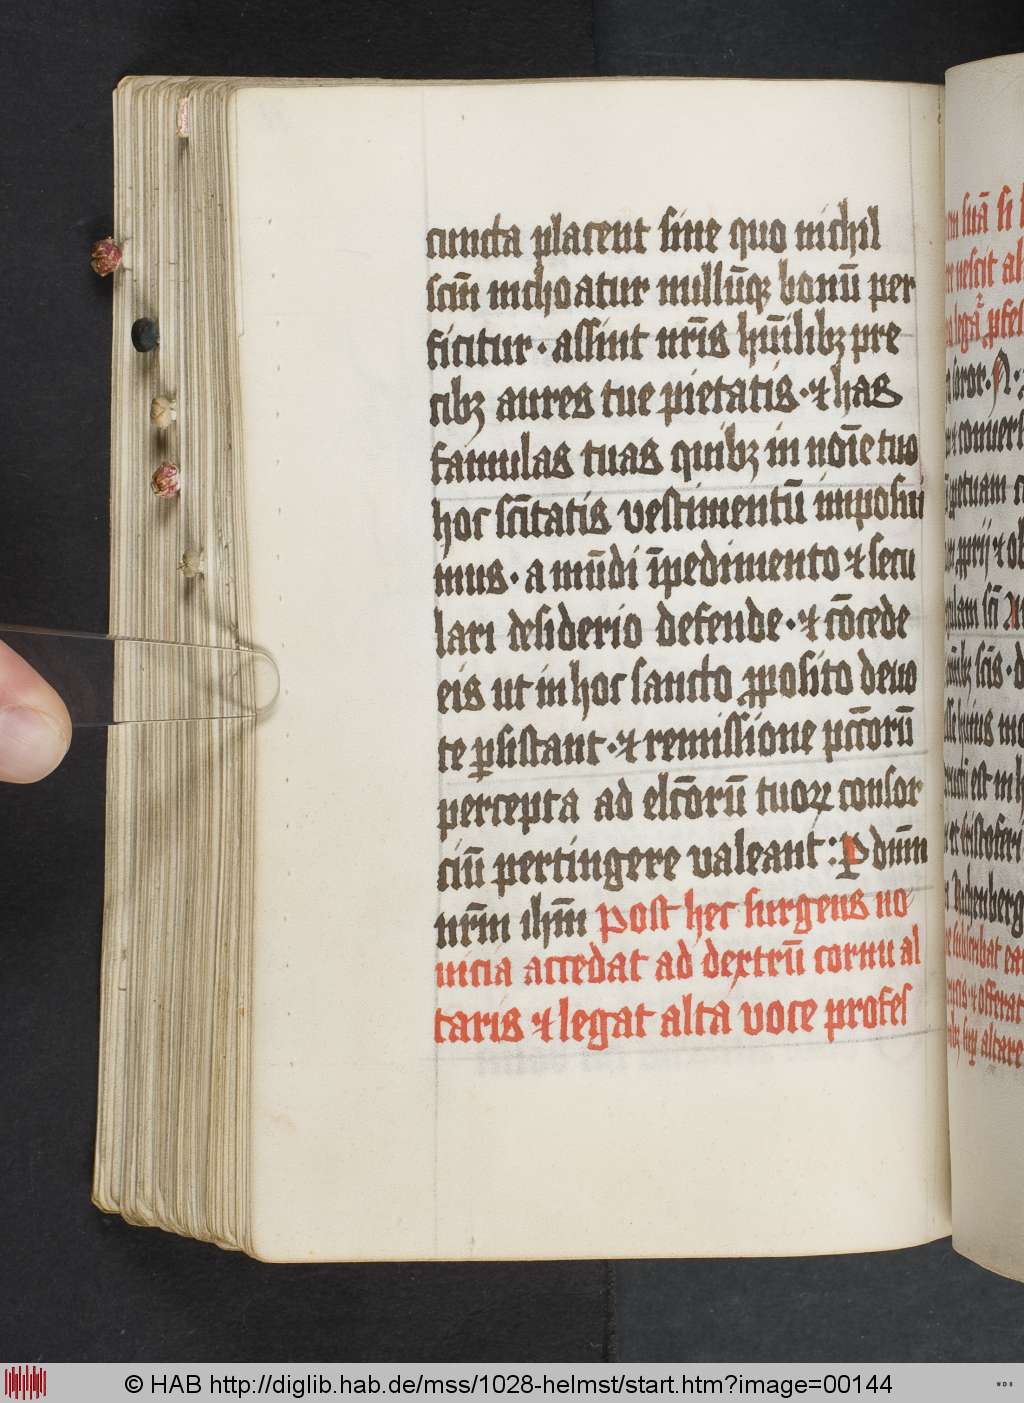 cuncta placent sine quo nichil
scīm inchoatur nullūqꝫ bonū per
ficitur · assint nr̄is hūilibꝫ pre
cibꝫ aures tue pietatis · ⁊ has
famulas tuas quibꝫ in noīe tuo
hoc sc̄itatis vestimentū imposui
mus · a mūdi īpedimento ⁊ secu
lari desiderio defende · ⁊ cōcede
eis ut in hoc sancto ꝓposito deuo
te ꝑsistant · ⁊ remissione pcc̄orū
percepta ad elc̄orū tuoꝝ consor
ciū pertingere valeant : P dnm̄
nrm̄ ihm̄ Post hec surgens no
uicia accedat ad dextrū cornu al
taris ⁊ legat alta voce profes
suā si
nescit
soror · N ·
petuam
scī
scis ·
huius
est in
cristoferi
offerat
altare
© HAB http://diglib.hab.de/mss/1028-helmst/start.htm?image=00144